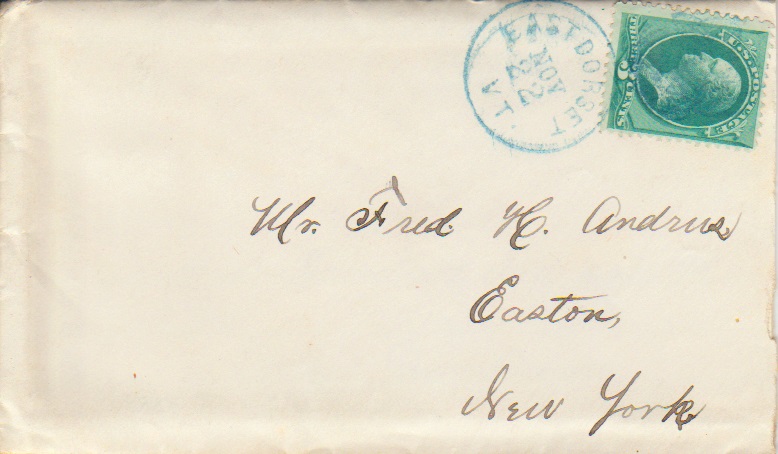 EAST DORSET
NOV
22
VT.
U.S. POSTAGE
THREE 3 CENTS
Mr. Fred. H. Andrus,
Easton,
New York